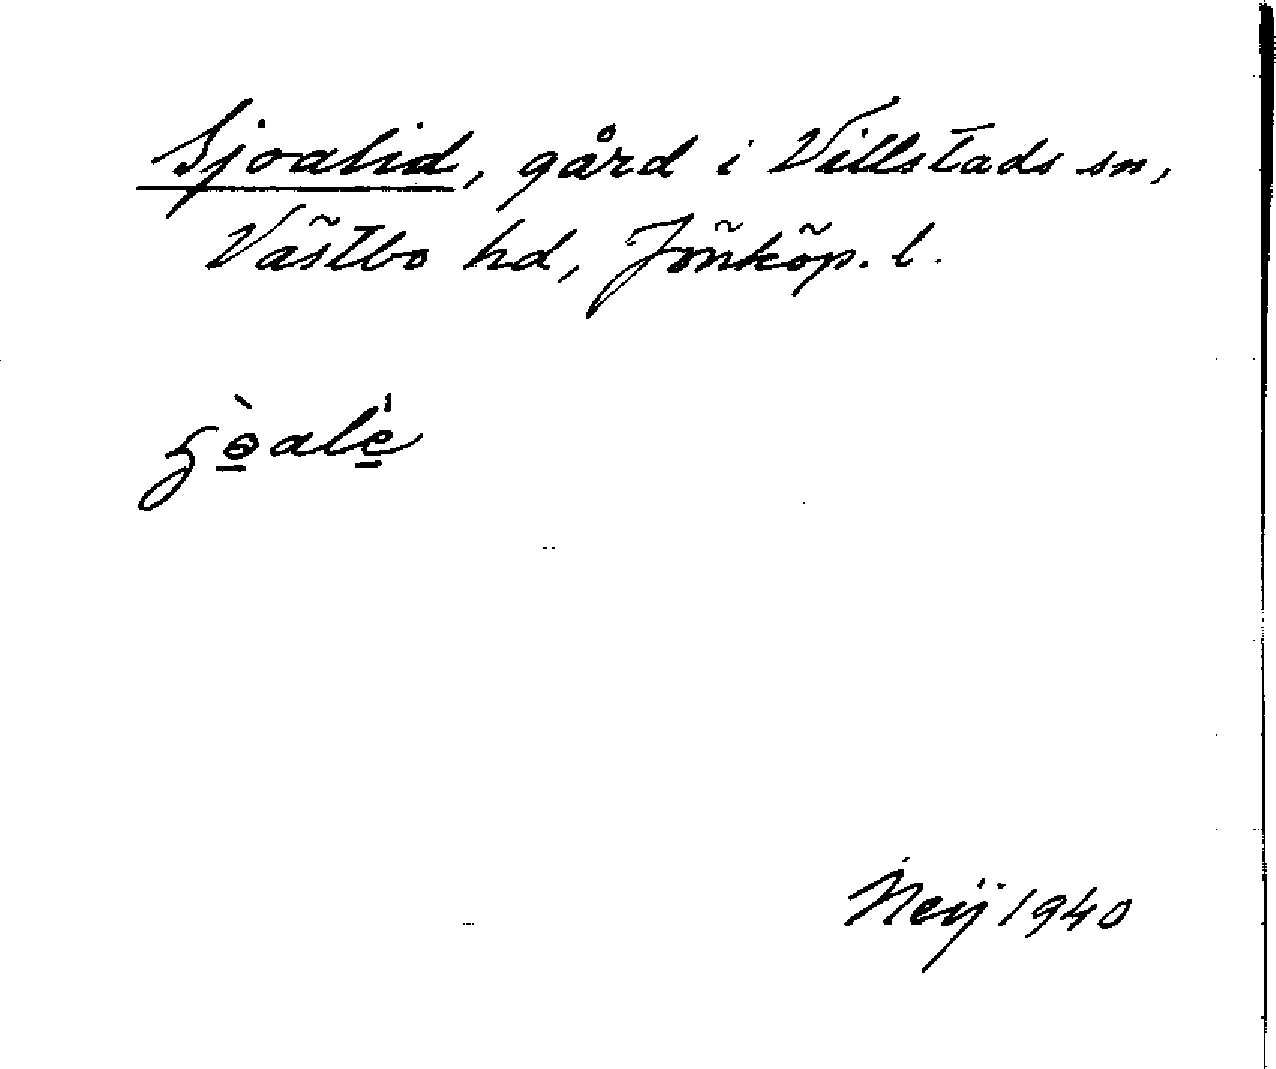 Sjoalid, gård i Villstads sn,
Västbo hd, Jönköp. l.
ʒòalé
Neij 1940